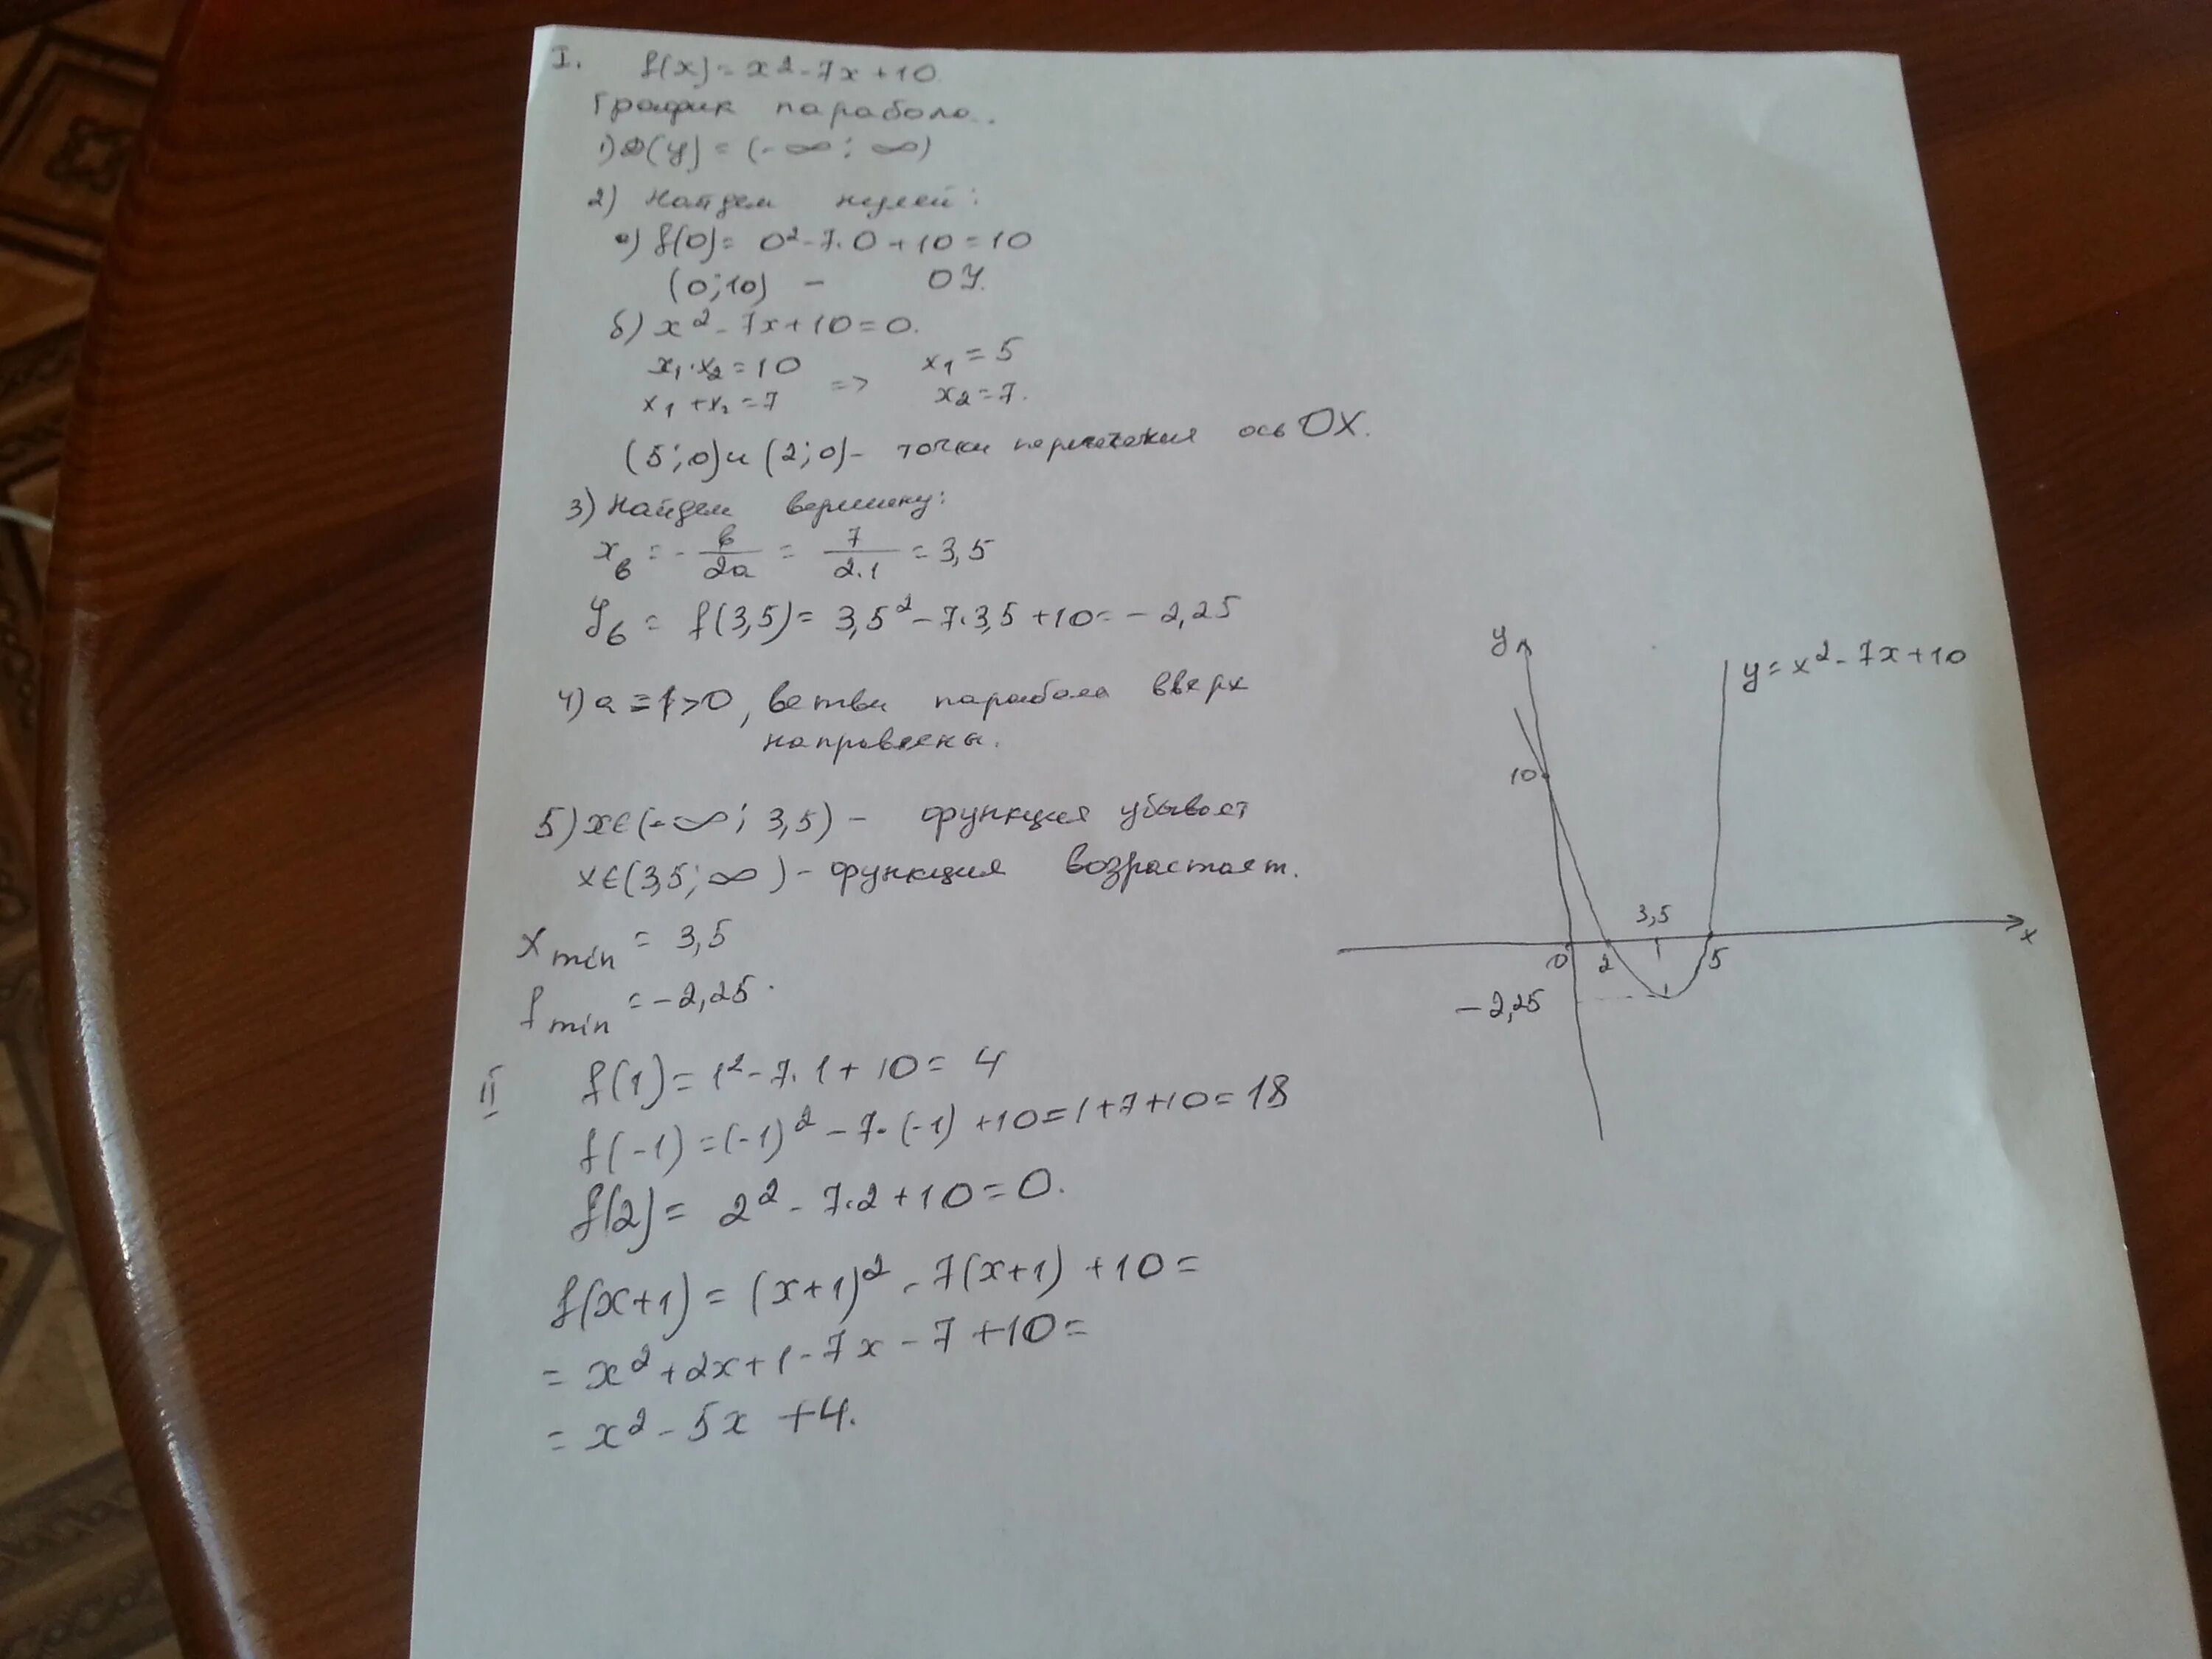 I. f(x) = x² - 7x + 10
График парабола.
1) D(y) = (-∞; ∞)
2) Найдем нулей:
а) f(0) = 0² - 7·0 + 10 = 10
(0; 10) - OY.
б) x² - 7x + 10 = 0.
x₁·x₂ = 10
x₁ + x₂ = 7 => x₁ = 5
x₂ = 7.
(5; 0) и (2; 0) - точки ось OX.
3) Найдем вершину:
xв = - в/2a = 7/2·1 = 3,5
yв = f(3,5) = 3,5² - 7·3,5 + 10 = - 2,25
4) a = 1 > 0, ветви парабола вверх
направлены.
5) x ∈ (-∞; 3,5) - функция убывает
x ∈ (3,5; ∞) - функция возрастает.
x min = 3,5
f min = - 2,25.
II f(1) = 1² - 7·1 + 10 = 4
f(-1) = (-1)² - 7·(-1) + 10 = 1 + 7 + 10 = 18
f(2) = 2² - 7·2 + 10 = 0.
f(x+1) = (x+1)² - 7(x+1) + 10 =
= x² + 2x + 1 - 7x - 7 + 10 =
= x² - 5x + 4.
y
y = x² - 7x + 10
10
3,5
x
0 2 5
- 2,25